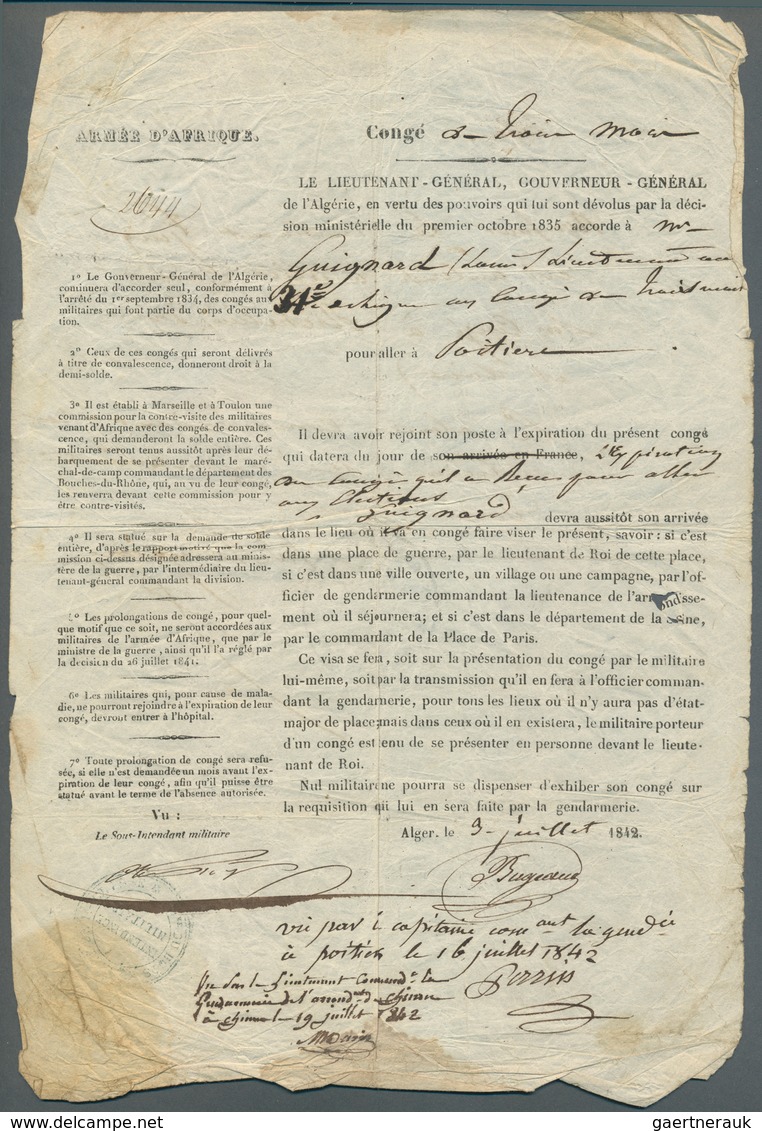 ARMÉE D'AFRIQUE.
2644
1º Le Gouverneur-Général de l'Algérie,
continuera d'accorder seul, conformément à
l'arrêté du 1er septembre 1834, des congés aux
militaires qui font partie du corps d'occupa-
tion.
2º Ceux de ces congés qui seront délivrés
à titre de convalescence, donneront droit à la
demi-solde.
3º Il est établi à Marseille et à Toulon une
commission pour la contre-visite des militaires
venant d'Afrique avec des congés de convales-
cence, qui demanderont la solde entière. Ces
militaires seront tenus aussitôt après leur dé-
barquement de se présenter devant le maré-
chal-de-camp commandant le département des
Bouches-du-Rhône, qui, au vu de leur congé,
les renverra devant cette commission pour y
être contre-visités.
4º Il sera statué sur la demande de solde
entière, d'après le rapport motivé que la com-
mission ci-dessus désignée adressera au minis-
tère de la guerre, par l'intermédiaire du lieu-
tenant-général commandant la division.
5º Les prolongations de congé, pour quel-
que motif que ce soit, ne seront accordées aux
militaires de l'armée d'Afrique, que par le
ministre de la guerre, ainsi qu'il l'a réglé par
la décision du 26 juillet 1841.
6º Les militaires qui, pour cause de mala-
die, ne pourront rejoindre à l'expiration de leur
congé, devront entrer à l'hôpital.
7º Toute prolongation de congé sera refu-
sée, si elle n'est demandée un mois avant l'ex-
piration de leur congé, afin qu'il puisse être
statué avant le terme de l'absence autorisée.
Vu :
Le Sous-Intendant militaire
Congé de trois mois
LE LIEUTENANT-GÉNÉRAL, GOUVERNEUR-GÉNÉRAL
de l'Algérie, en vertu des pouvoirs qui lui sont dévolus par la déci-
sion ministérielle du premier octobre 1835 accorde à mr
Guignard (Louis) Lieutenant au
31e un congé de trois mois
pour aller à Poitiers
Il devra avoir rejoint son poste à l'expiration du présent congé
qui datera du jour de son arrivée en France, l'expiration
du congé qu'il a pour aller
aux élections
Guignard devra aussitôt son arrivée
dans le lieu où il va en congé faire viser le présent, savoir: si c'est
dans une place de guerre, par le lieutenant de Roi de cette place,
si c'est dans une ville ouverte, un village ou une campagne, par l'of-
ficier de gendarmerie commandant la lieutenance de l'arrondisse-
ment où il séjournera; et si c'est dans le département de la Seine,
par le commandant de la Place de Paris.
Ce visa se fera, soit sur la présentation du congé par le militaire
lui-même, soit par la transmission qu'il en fera à l'officier comman-
dant la gendarmerie, pour tous les lieux où il n'y aura pas d'état-
major de place; mais dans ceux où il en existera, le militaire porteur
d'un congé est tenu de se présenter en personne devant le lieute-
nant de Roi.
Nul militaire ne pourra se dispenser d'exhiber son congé sur
la requisition qui lui en sera faite par la gendarmerie.
Alger, le 3 juillet 1842.
Bugeaud
vu par le capitaine comant la gendie
à poitiers le 16 juillet 1842
Perrin
Vu par le Lieutenant Commendt la
Gendarmerie de l'arrondt de chinon
à chinon le 19 juillet 1842
gaertnerauk